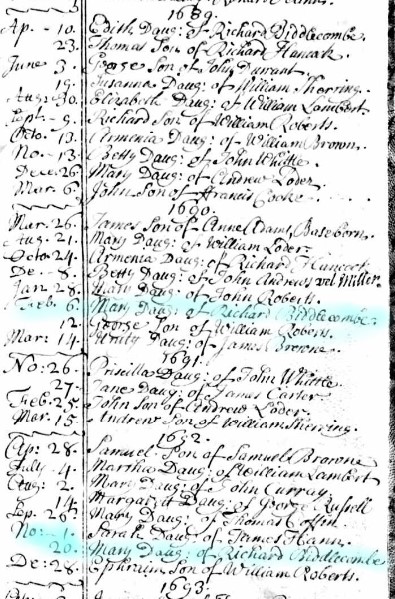 1689.
Ap. - 10. Edith Daug: of Richard Biddlecombe.
23. Thomas Son of Richard Hancock.
June 3. George Son of John Durrant.
19. Susanna Daug: of William Sherring.
Aug: 30. Elizabeth Daug: of William Lambert
Sept - 9. Richard Son of William Roberts.
Octo. 13. Armenia Daug: of William Brown.
No. - 13. Betty Daug: of John Whittle.
Dece. 26. Mary Daug: of Andrew Loder.
Mar. 6. John Son of Francis Cooke.
1690.
Mar. 26. James Son of Anne Adams Baseborn.
Aug. 21. Mary Daug: of William Loder.
Octo 24. Armenia Daug: of Richard Hancock.
De. - 8. Betty Daug: of John Andrews vel Miller.
Jan. 28. Mary Daug: of John Roberts.
Feb. 6. Mary Daug: of Richard Biddlecombe.
12. George Son of William Roberts.
Mar: 14. Daug: of James Browne.
1691.
No: 26. Priscilla Daug: of John Whittle.
27. Jane Daug: of James Carter.
Feb. 25. John Son of Andrew Loder.
Mar. 15. Andrew Son of William Sherring.
1692.
Ap: 28. Samuel Son of Samuel Browne
July. 4. Martha Daug: of William Lambert
Aug: 2. Mary Daug: of John Curray.
14. Margaret Daug: of George Russell
Sep. 26. Mary Daug: of Thomas Coffin.
No: 1. Sarah Daug: of James Hann.
20. Mary Daug: of Richard Biddlecombe
De: 28. Ephraim Son of William Roberts.
1693.